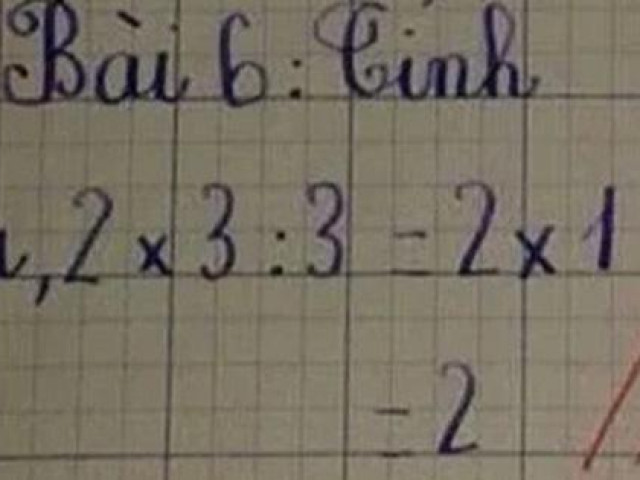 Bài 6: Tính
a, 2 x 3 : 3 = 2 x 1
= 2